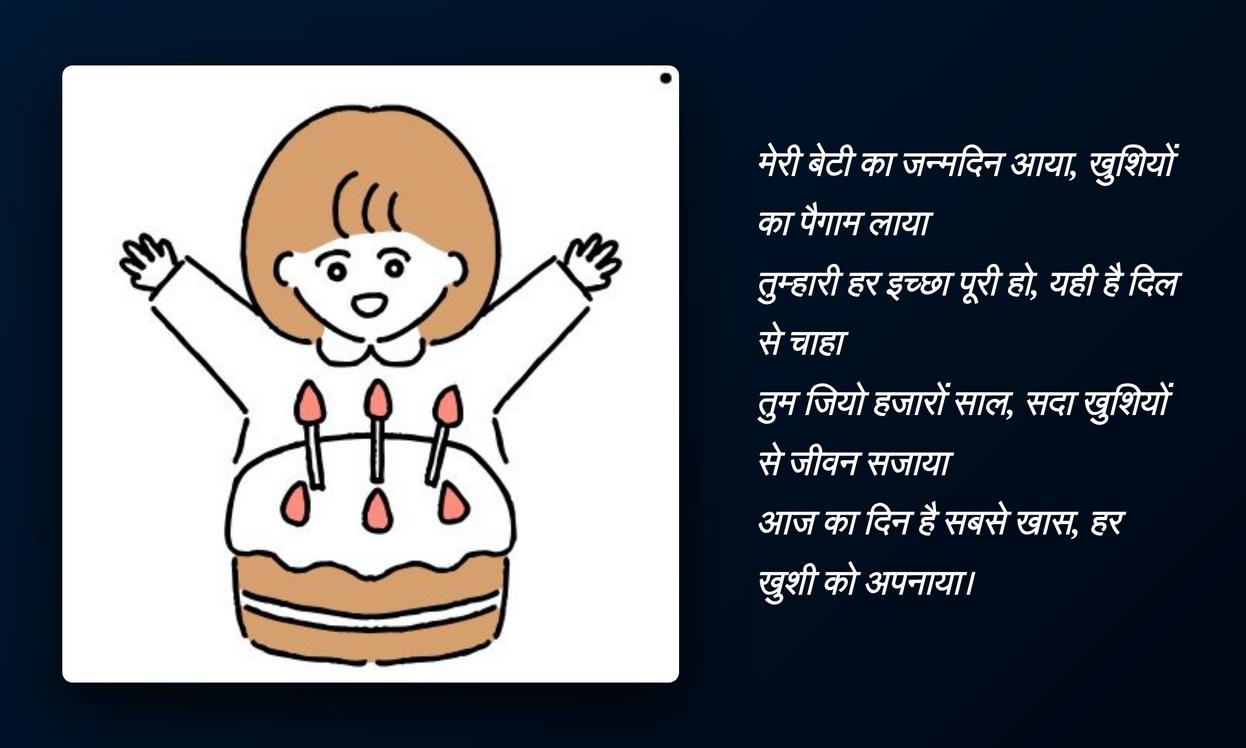 मेरी बेटी का जन्मदिन आया, खुशियों
का पैगाम लाया
तुम्हारी हर इच्छा पूरी हो, यही है दिल
से चाहा
तुम जियो हजारों साल, सदा खुशियों
से जीवन सजाया
आज का दिन है सबसे खास, हर
खुशी को अपनाया।